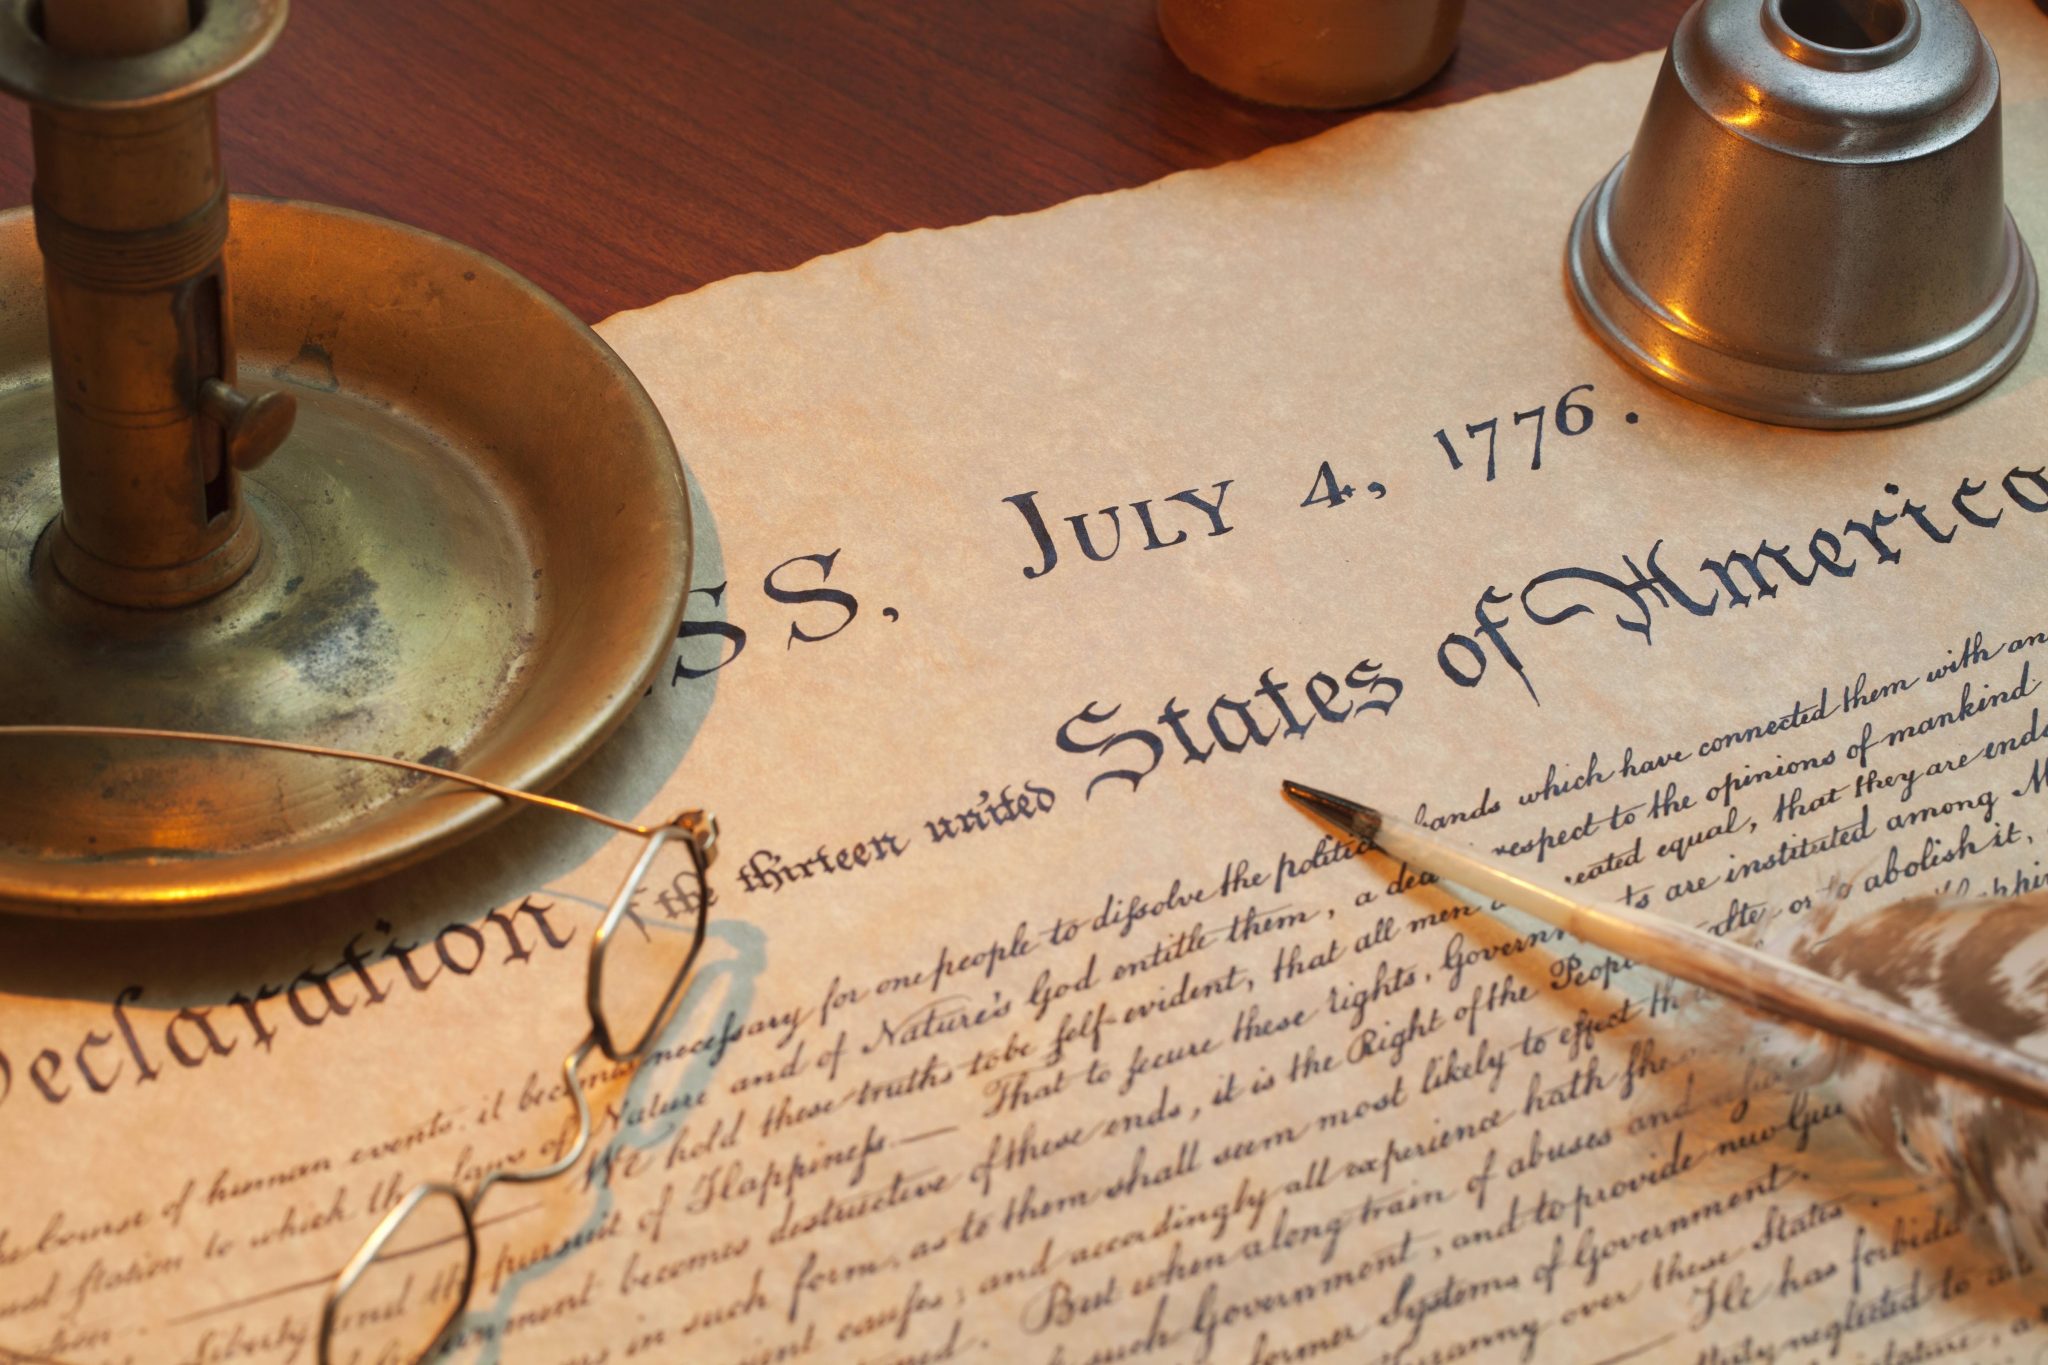 SS. JULY 4, 1776.
eclaration the thirteen united States of America
of human events, it becomes necessary for one people to dissolve the political bands which have connected them with an
station to which the laws of Nature and of Nature's God entitle them, a respect to the opinions of mankind
We hold these truths to be self-evident, that all men equal, that they are endo
Liberty and the pursuit of Happiness.— That to secure these rights, Govern are instituted among M
becomes destructive of these ends, it is the Right of the People or to abolish it,
in such form, as to them shall seem most likely to effect
causes; and accordingly all experience hath she
But when a long train of abuses and
such Government, and to provide new
former Systems of Government.
over these States
He has forbid
neglected to